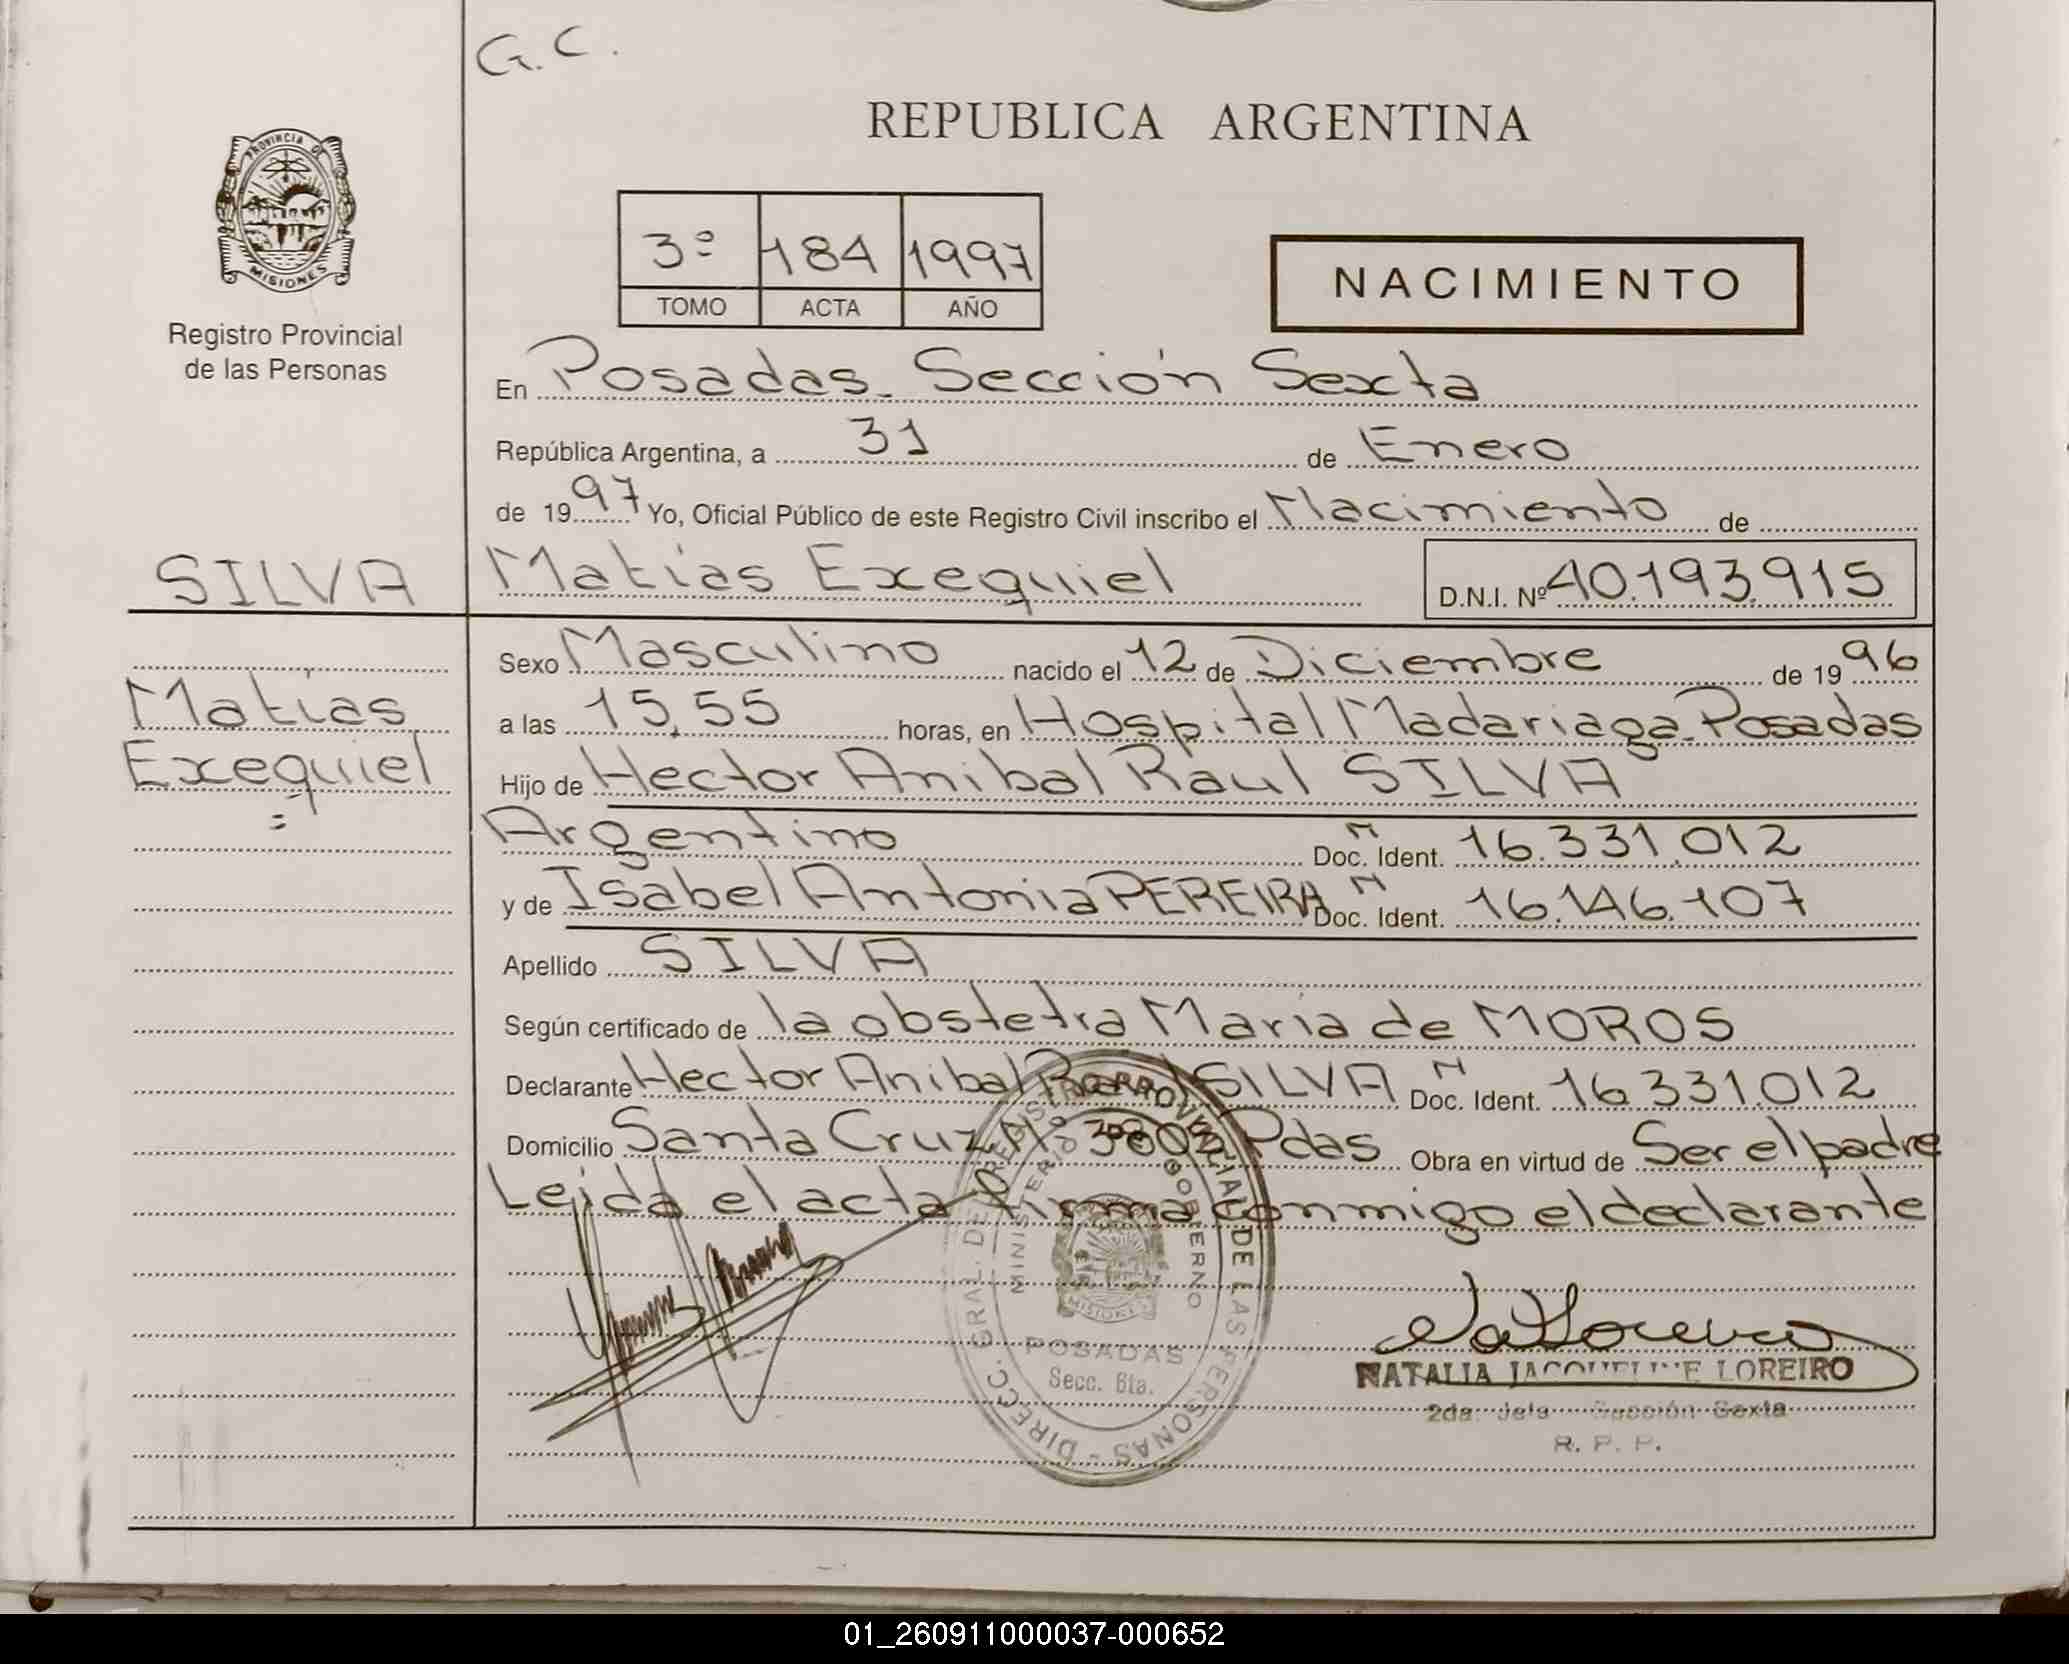 G.C.
REPUBLICA ARGENTINA
PROVINCIA DE
MISIONES
Registro Provincial
de las Personas
3º 184 1997
TOMO ACTA AÑO
NACIMIENTO
En Posadas. Sección Sexta
República Argentina, a 31 de Enero
de 1997 Yo, Oficial Público de este Registro Civil inscribo el Nacimiento de
SILVA
Matías Exequiel D.N.I. Nº 40.193.915
Sexo Masculino nacido el 12 de Diciembre de 1996
Matías
Exequiel
=
a las 15,55 horas, en Hospital Madariaga-Posadas
Hijo de Hector Anibal Raul SILVA
Argentino Doc. N Ident. 16.331.012
y de Isabel Antonia PEREIRA Doc. N Ident. 16.146.107
Apellido SILVA
Según certificado de la obstetra María de MOROS
Declarante Hector Anibal Raul SILVA Doc. N Ident. 16.331.012
Domicilio Santa Cruz Pdas Obra en virtud de Ser el padre
Leida el acta firma conmigo el declarante
DIRECC. GRAL. DE REGISTRO PROVINCIAL DE LAS PERSONAS -
MINISTERIO DE GOBIERNO
MISIONES
POSADAS
Secc. 6ta.
NATALIA JACQUELINE LOREIRO
2da. Jefa Sección Sexta
R. P. P.
01_260911000037-000652